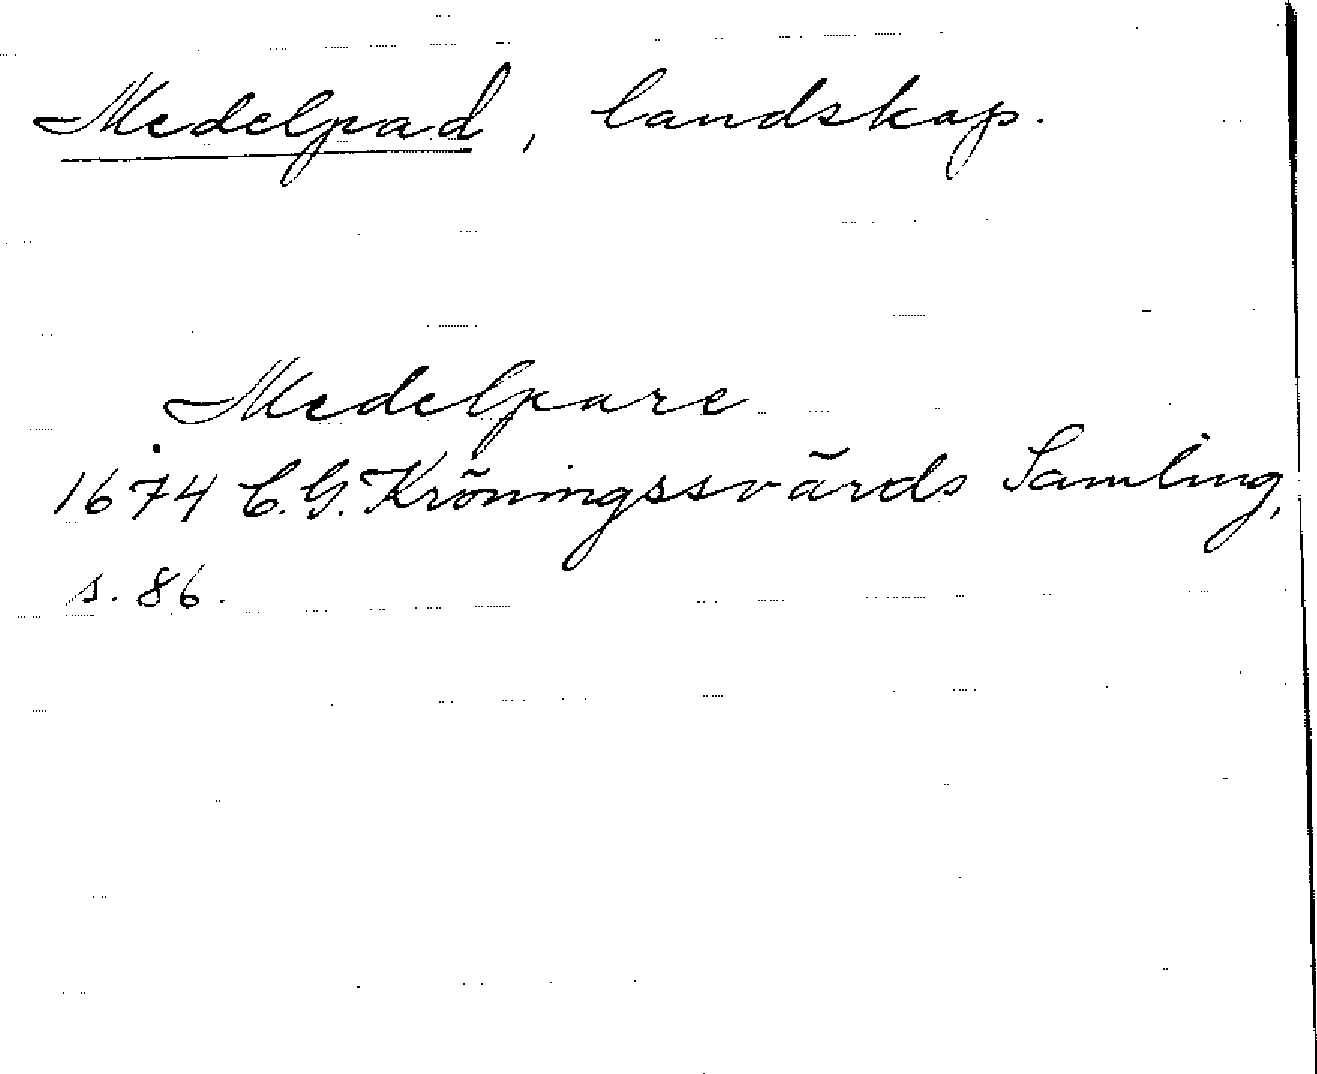 Medelpad, landskap.
Medelpare
1674 C.G. Kröningssvärds Samling,
s. 86.